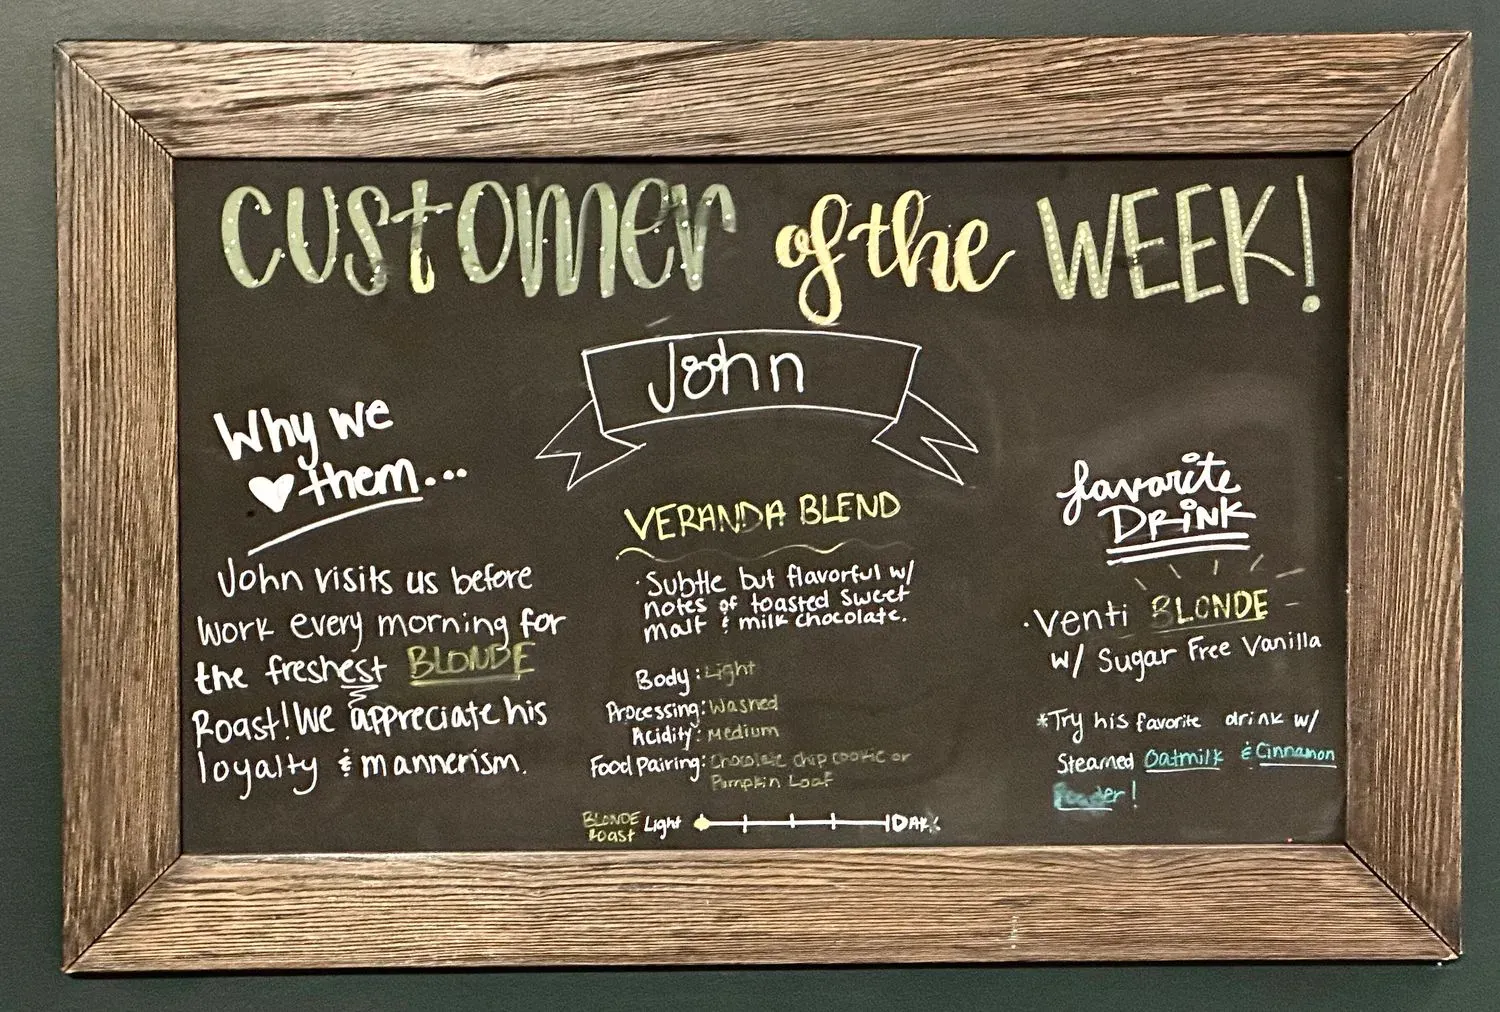 Customer of the WEEK!
John
Why we
♥ them...
John visits us before
work every morning for
the freshest BLONDE
Roast! We appreciate his
loyalty & mannerism.
VERANDA BLEND
· Subtle but flavorful w/
notes of toasted sweet
malt & milk chocolate.
Body: Light
Processing: Washed
Acidity: Medium
Food Pairing: Chocolate chip cookie or
Pumpkin Loaf
BLONDE
Roast
Light
DARK
favorite
DRINK
· Venti BLONDE
w/ Sugar Free Vanilla
*Try his favorite drink w/
Steamed Oatmilk & Cinnamon
Powder!